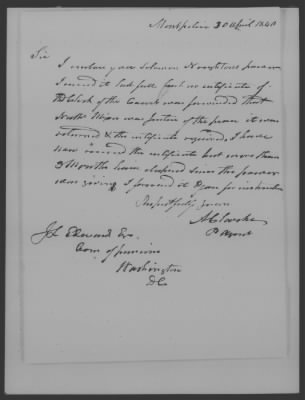 Montpelier 30 April 1840
Sir
I enclose you Solomon
I sent it last fall but no certificate of
the Clerk of the Court was forwarded that
was Justice of the peace it was
returned & the certificate required, I have
now received the certificate but more than
3 Months have elapsed since the power
was given I forward it to you for instruction
Respectfully yours
A Clarke
P Agent
J L Edward Esq
Com of pensions
Washington
DC